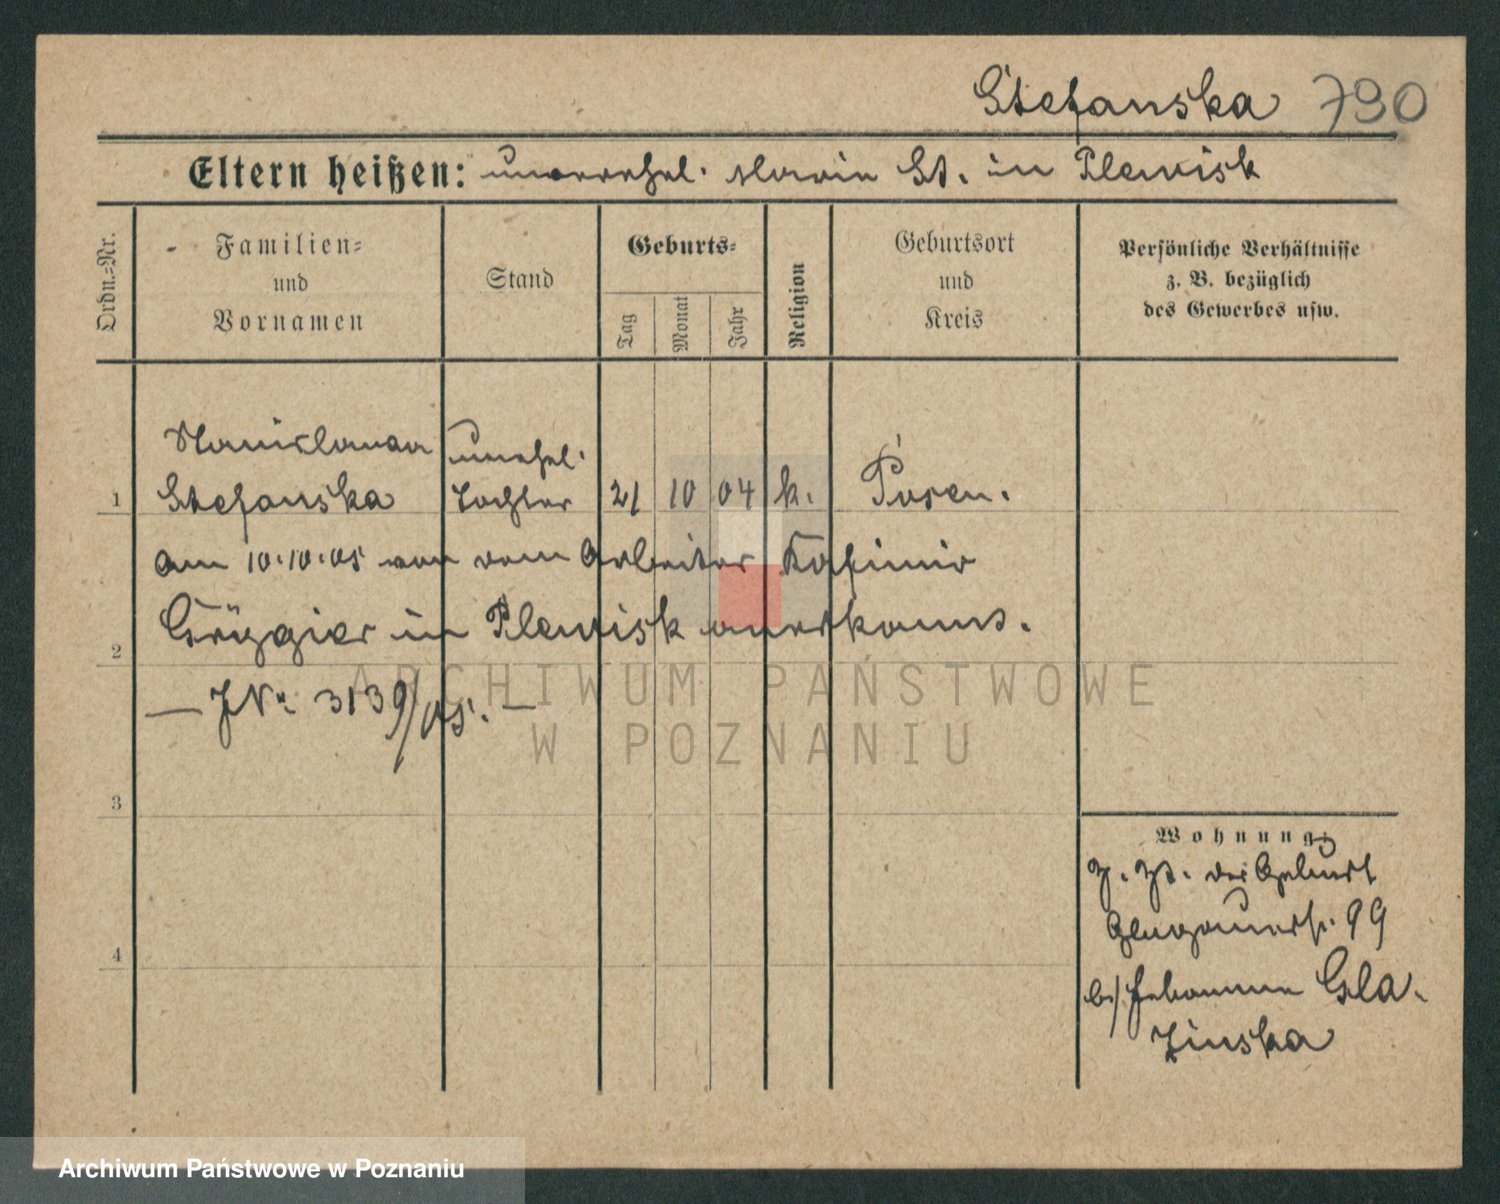 Stefanska 790
Eltern heißen: unverehel. Maria St. in Plewisk
Ordn.=Nr.
Familien=
und
Vornamen
Stand
Geburts=
Tag
Monat
Jahr
Religion
Geburtsort
und
Kreis
Persönliche Verhältnisse
z. B. bezüglich
des Gewerbes usw.
Stanislawa unehel.
1 Stefanska Tochter 21 10 04 k. Posen.
am 10.10.05 von vom Arbeiter Kasimir
2 in Plewisk anerkannt.
— JNr 3139/05. —
3
Wohnung
z. Zt. der Geburt
Glogauerstr. 99
4
b/ Hebamme Gla-
zinska
ARCHIWUM PAŃSTWOWE
W POZNANIU
Archiwum Państwowe w Poznaniu